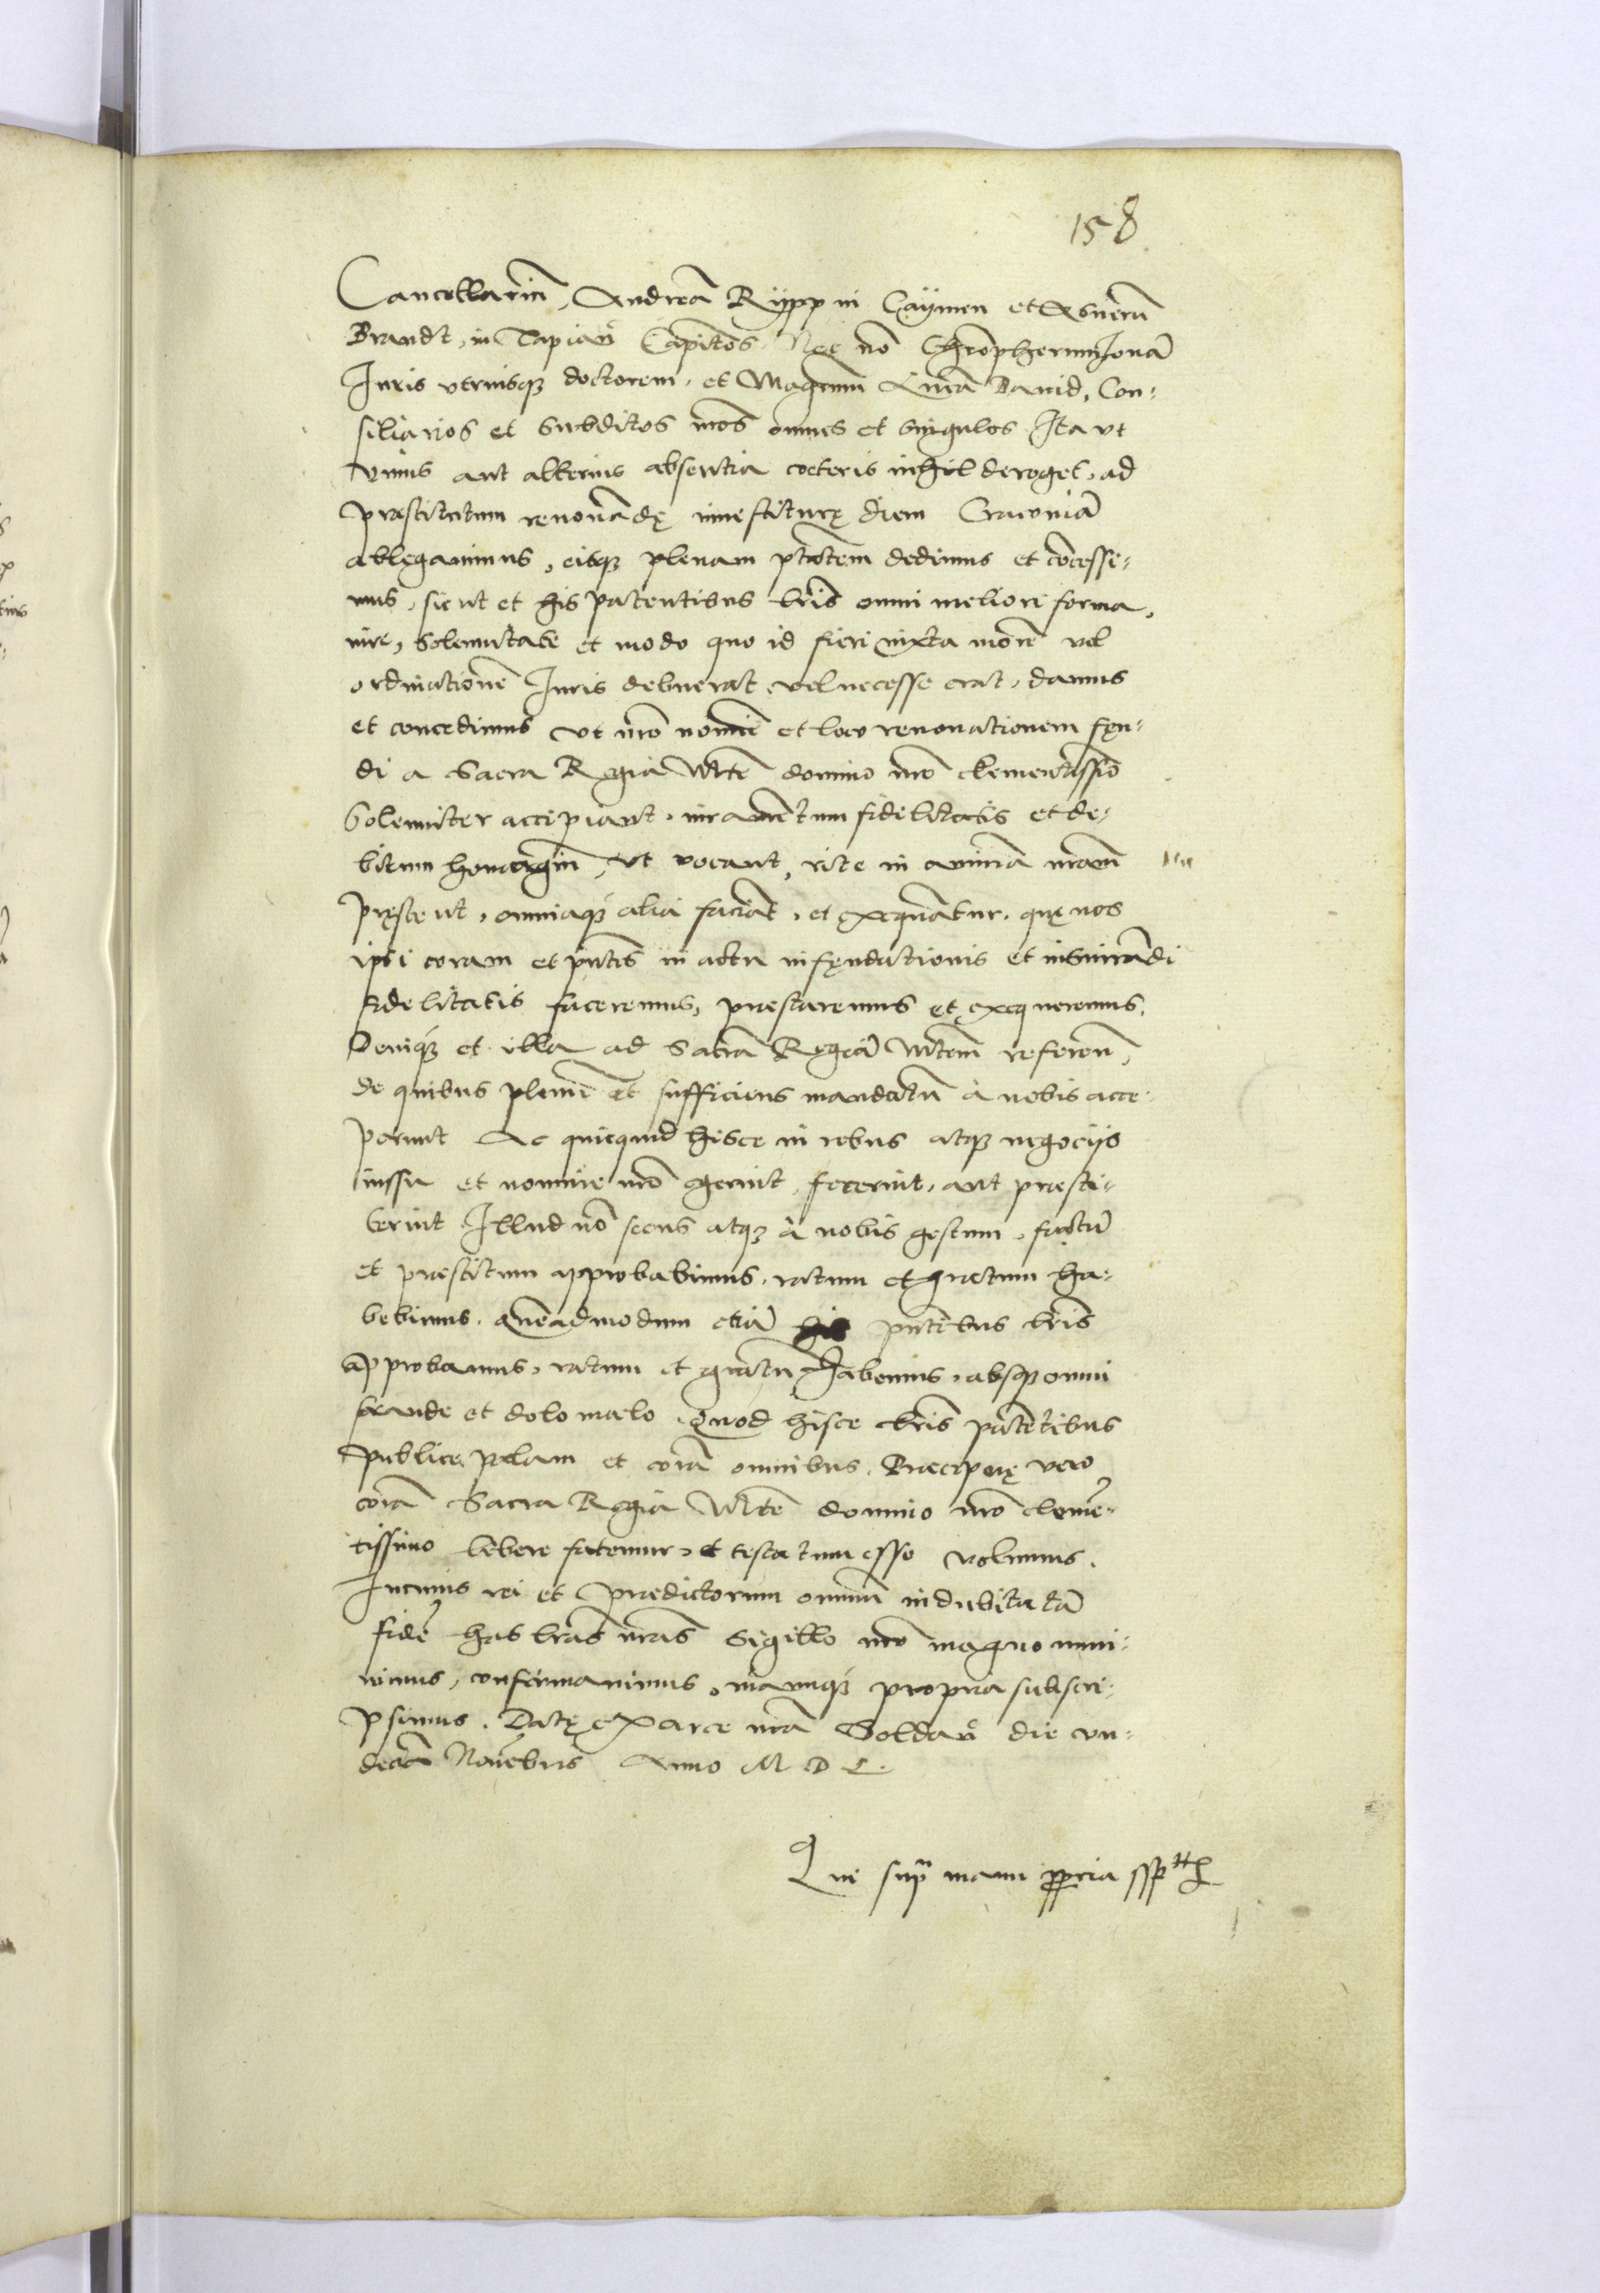 158
Cancellariũ, Andreã Rypp in Caÿmen et Asuerũ
Brandt, in Tapiaũ Capitẽos Nec nõ Chrõpherum Jonã
Juris vtriusq̃ doctorem, et Magrum Lucã Dauid, Con-
siliarios et subditos nr̃os omnes et singulos Ita vt
vnius aut alterius absentia cœteris nihil deroget, ad
præstitutum renouãdę inuestiturę diem Cracouiã
ablegauimus, eisq̃ plenam ptãtem dedimus et cõcesse-
mus, sicut et his patentibus lris omni meliori forma,
iure, solemnitate et modo quo id fieri iuxta morẽ vel
ordinationẽ Juris debuerat vel necesse erat, damus
et concedimus vt nr̃o nomiẽ et loco renouationem feu-
di a Sacra Regia Mte domino nr̃o clementissiõ
solemniter accipiant, iuramẽtum fidelitatis et de-
bitum homagiũ, vt vocant, rite in animã nr̃am
pręstent, omniaq̃ alia faciãt, et exequãtur, quę nos
ipsi coram et pñtes in actu infeudationis et insiurãdi
fidelitatis faceremus, prestaremus et exequeremus.
Deniq̃ et illa ad Sacrã Regiã Mtem referẽn,
de quibus plenũ et sufficiens mandatũ à nobis acce-
perunt Ac quicquid hisce in rebus atq̃ negocijs
iussu et nomine nr̃o gerint, fecerint, aut præsti-
terint Illud nõ secus atq̃ à nobis gestum, factũ
et præstitum approbabimus, ratum et gratum ha-
bebimus, quẽadmodum etiã his pñtibus lris
approbamus, ratum et gratũ habemus, absq̃ omni
fraude et dolo malo. Quod hisce lris patẽtibus
publice, palam et corã omnibus. Præcipuę vero
corã Sacra Regia Mte domino nr̃o clemẽ-
tissimo libere fatemur, et testatum esse volumus.
In cuius rei et prædictorum omniũ indubitatã
fidẽ has lras nr̃as Sigillo nr̃o magno muni-
uimus, confirmauimus, manuq̃ propria subscri-
psimus. Datę ex arce nr̃a Soldaũ die vn-
decĩa Nouẽbris Anno M D L.
Que supra manu ppria sspt